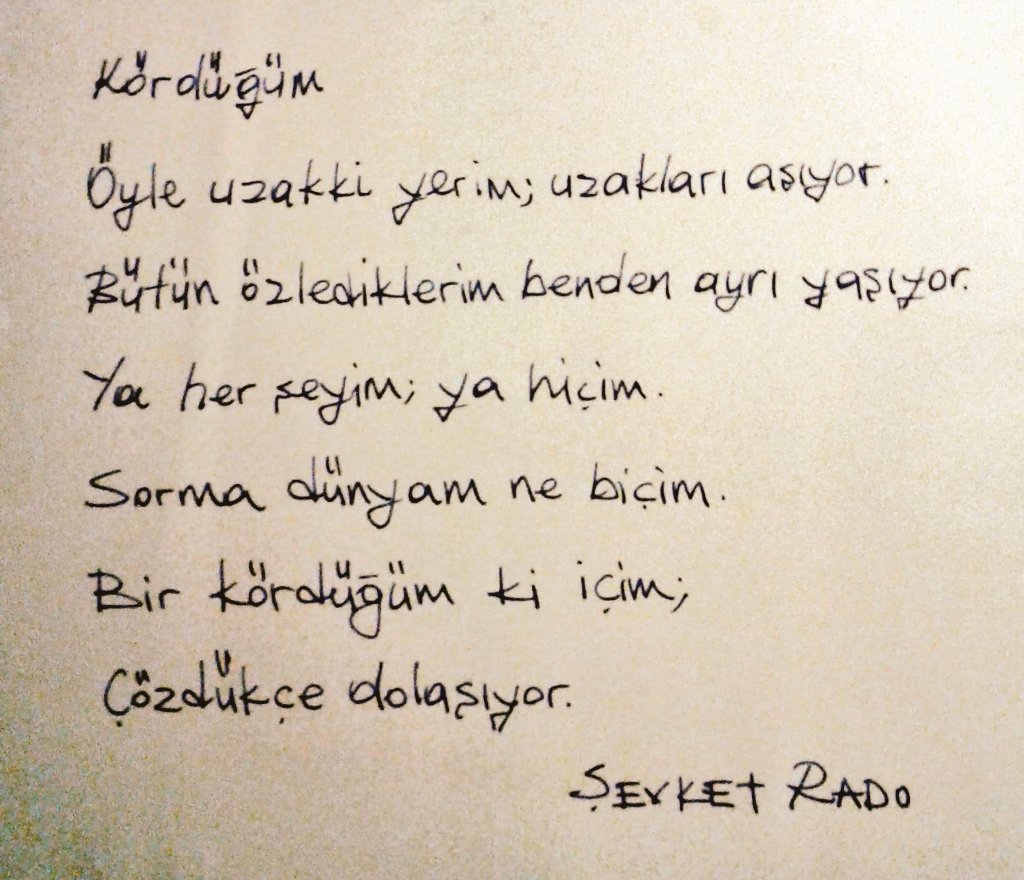 Kördüğüm
Öyle uzakki yerim; uzakları aşıyor.
Bütün özlediklerim benden ayrı yaşıyor.
Ya her şeyim; ya hiçim.
Sorma dünyam ne biçim.
Bir kördüğüm ki içim;
Çözdükçe dolaşıyor.
ŞEVKET RADO